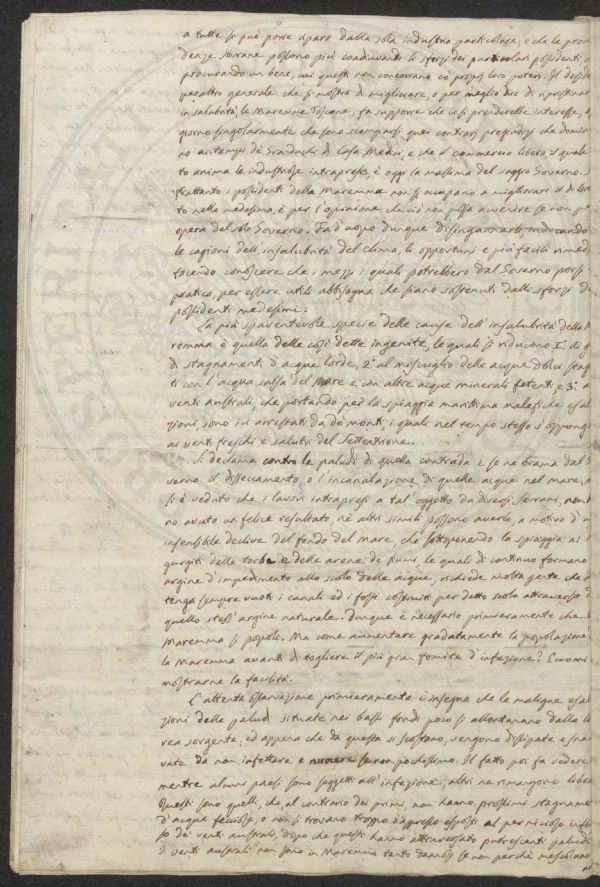 a tutte si può porre riparo dalla sola industria particolare, e che le prov
denze sovrane possono più coadiuvando li sforzi dei particolari possidenti, o
procurando un bene, cui questi non concorrano co' propri loro poteri. Il desid
peraltro generale che si mostra di migliorare, o per meglio dire di ripristinar
in salubrità, le Maremme Toscane, fa supporre che vi si prenderebbe interesse, o
giorno singolarmente che sono scomparsi quei contrari pregiudizi che domin
no ai tempi de' Granduchi di Casa Medici, e che il commercio libero, il quale
to anima le industriose intraprese, è oggi la massima del saggio Governo. S
frattanto i possidenti della Maremma non si occupano a migliorare il di lor
to nella medesima, è per l'opinione che ciò non possa avvenire se non p
opera del solo Governo. Fa d'uopo dunque disingannarli, indicando
le cagioni dell'insalubrità del clima, li opportuni e più facili rimed
facendo conoscere che i mezzi i quali potrebbero dal Governo porsi
pratica, per essere utili abbisogna che siano sostenuti dalli sforzi d
possidenti medesimi.
La più spaventevole specie delle cause dell'insalubrità della
remma è quella delle così dette ingenite, le quali si riducono 1.° a g
di stagnamenti d'acque lorde, 2.° al miscuglio delle acque dolci stag
ti con l'acqua salsa del Mare e con altre acque minerali fetenti, e 3.° a
venti australi, che portando per la spiaggia marittima malefiche esal
zioni, sono ivi arrestati da de' monti, i quali nel tempo stesso si oppong
ai venti freschi e salubri del Settentrione.
Si declama contro le paludi di quella contrada e se ne brama dal
verno il disseccamento, o l'incanalazione di quelle acque nel mare,
si è veduto che i lavori intrapresi a tal'oggetto da diversi Sovrani, non
no avuto un felice resultato, nè altri simili possono averlo, a motivo d'
insensibile declive del fondo del mare, che sottoponendo la spiaggia ai
gurgiti delle torbe e delle arene de' fiumi, le quali di continuo formano
argine d'impedimento allo scolo delle acque, richiede molta gente che
tenga sempre vuoti i canali ed i fossi costruiti per detto scolo attraverso d
quello stess'argine naturale. Dunque è necessario primieramente che
Maremma si popole. Ma come aumentare gradatamente la popolazione
la Maremma avanti di togliere il più gran fomite d'infezione? Eccomi
mostrarne la facilità.
L'attenta osservazione primieramente c'insegna che le maligne esal
zioni delle paludi situate nei bassi fondi poco si allontanano dalla l
rea sorgente; ed appena che da questa si scostano, vengono dissipate e sne
vate da non infettare e nuocere se non pochissimo. Il fatto poi fa vedere
mentre alcuni paesi sono soggetti all'infezione, altri ne rimangono liber
Questi sono quelli che, al contrario dei primi, non hanno prossimi stagname
d'acque fecciose, o non si trovano troppo d'appresso esposti al pernicioso infl
so de' venti australi, dopo che questi hanno attraversato putrescenti palud
I venti australi non sono in Maremma tanto dannosi se non perchè meschiano